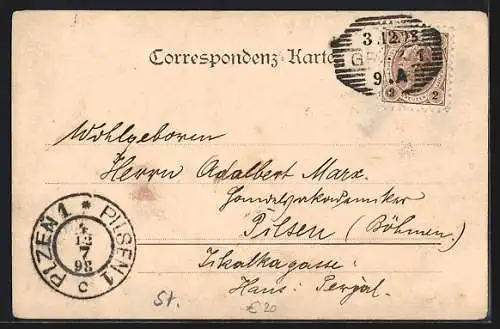 Correspondenz-Karte
3.12.98
9. A
2 2
Wohlgeboren
Herrn Adalbert Marx.
Handelsakademiker
Pilsen (Böhmen.)
Skalkagasse:
Haus: Perjal.
PLZEN 1 * PILSEN 1
4
12
7
98
C
St.
€20